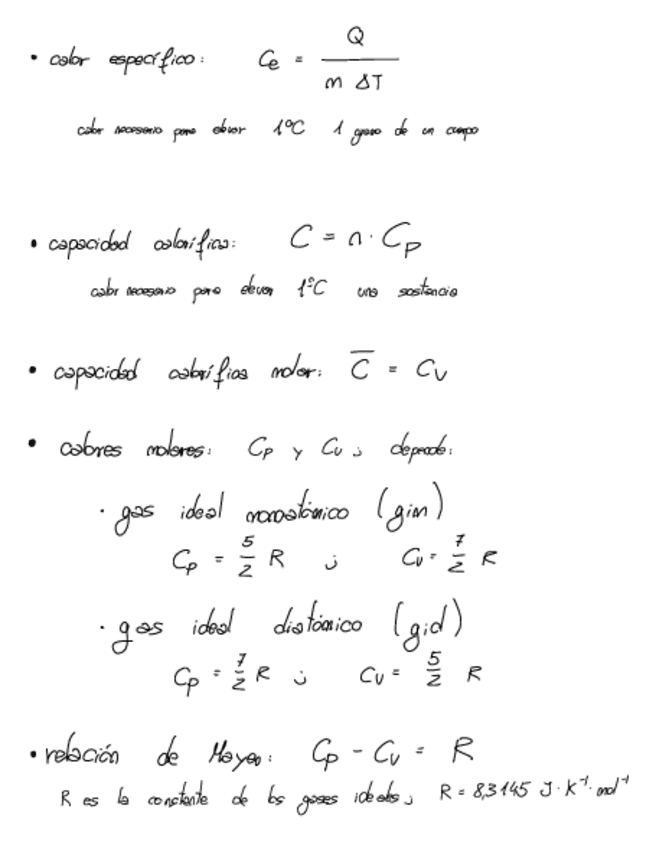 • calor específico: Ce = Q / m ΔT
calor necesario para elevar 1ºC 1 gramo de un cuerpo
• capacidad calorífica: C = n · Cp
calor necesario para elevar 1ºC una sustancia
• capacidad calorífica molar: C̅ = Cv
• calores molares: Cp y Cv ; depende:
· gas ideal monoatómico (gim)
Cp = 5/2 R ; Cv = 7/2 R
· gas ideal diatómico (gid)
Cp = 7/2 R ; Cv = 5/2 R
• relación de Mayer: Cp - Cv = R
R es la constante de los gases ideales; R = 8,3145 J · K⁻¹ · mol⁻¹